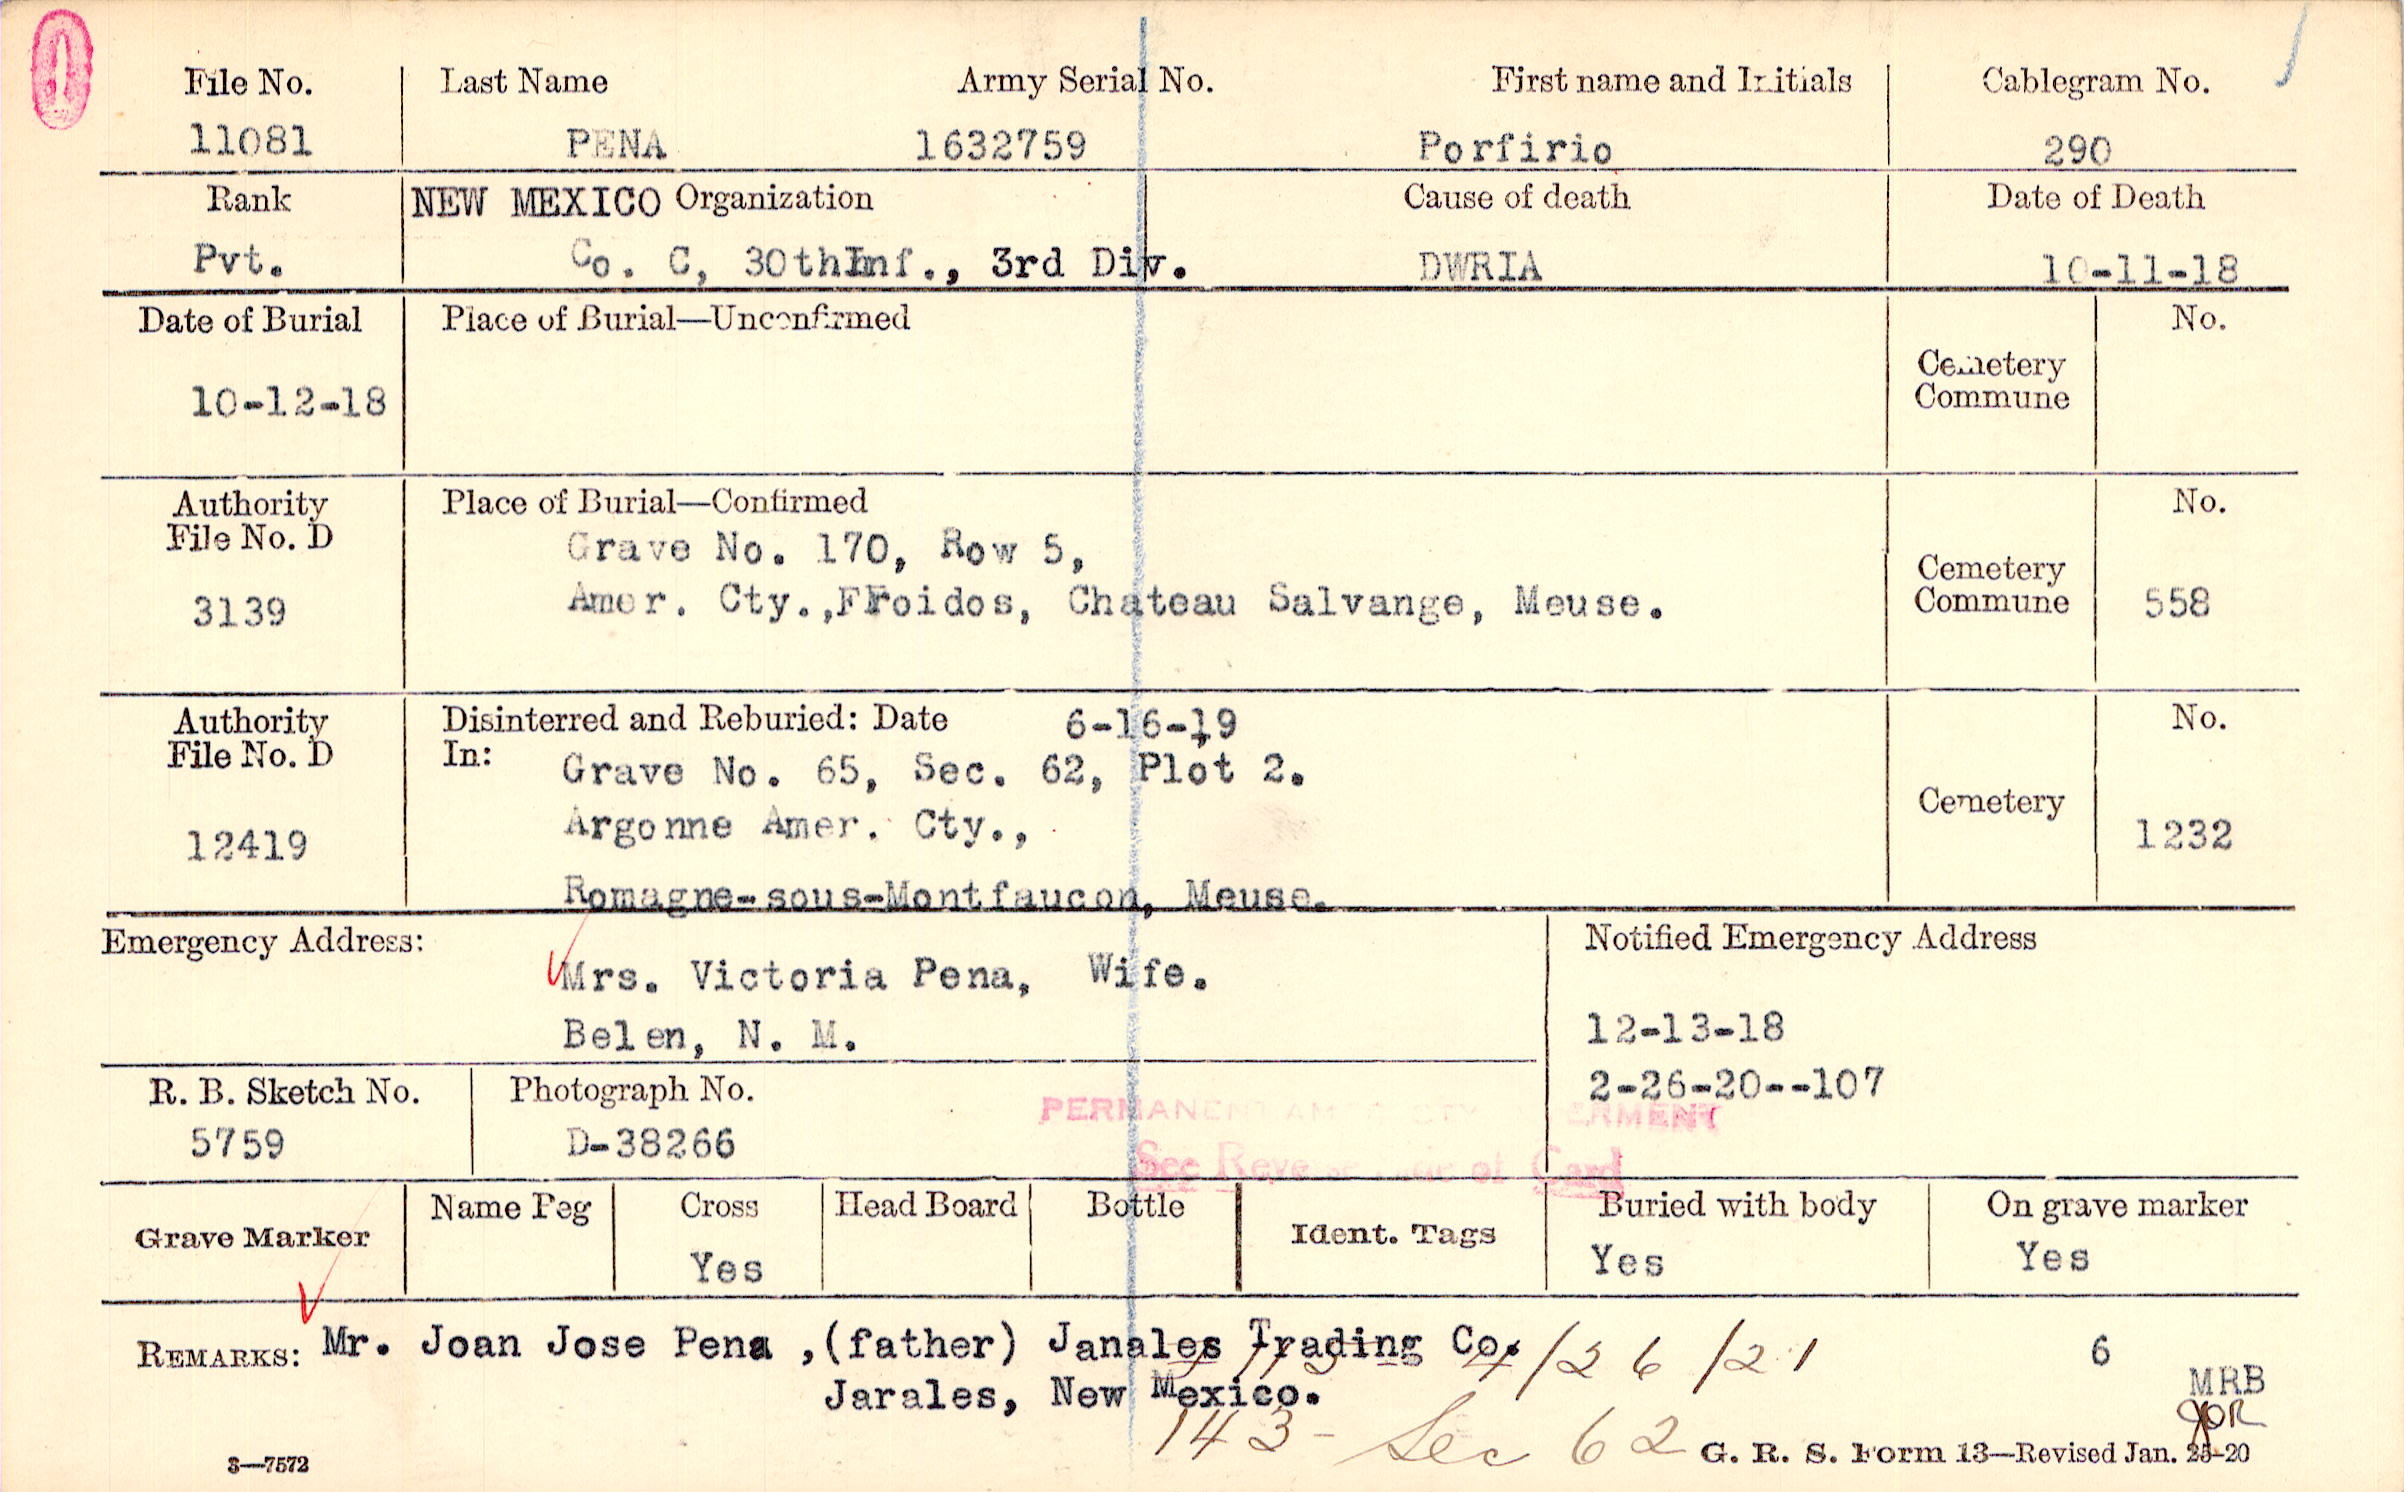 File No. Last Name Army Serial No. First name and Initials Cablegram No.
11081 PENA 1632759 Porfirio 290
Rank NEW MEXICO Organization Cause of death Date of Death
Pvt. Co. C, 30thInf., 3rd Div. DWRIA 10-11-18
Date of Burial Place of Burial—Unconfirmed No.
10-12-18 Cemetery
Commune
Authority Place of Burial—Confirmed No.
File No. D Grave No. 170, Row 5,
3139 Amer. Cty.,Froidos, Chateau Salvange, Meuse. Cemetery
Commune 558
Authority Disinterred and Reburied: Date 6-16-19 No.
File No. D In: Grave No. 65, Sec. 62, Plot 2.
12419 Argonne Amer. Cty., Cemetery 1232
Romagne-sous-Montfaucon, Meuse.
Emergency Address: Notified Emergency Address
Mrs. Victoria Pena, Wife.
Belen, N. M. 12-13-18
2-26-20--107
R. B. Sketch No. Photograph No.
5759 D-38266
PERMANENT AM CTY ERMENT
See Reverse Side of Card
Grave Marker Name Peg Cross Head Board Bottle Ident. Tags Buried with body On grave marker
Yes Yes Yes
REMARKS: Mr. Joan Jose Pena ,(father) Janales Trading Co. 6
4/26/21
Jarales, New Mexico. MRB
143- Sec 62
3—7572 G. R. S. Form 13—Revised Jan. 25-20